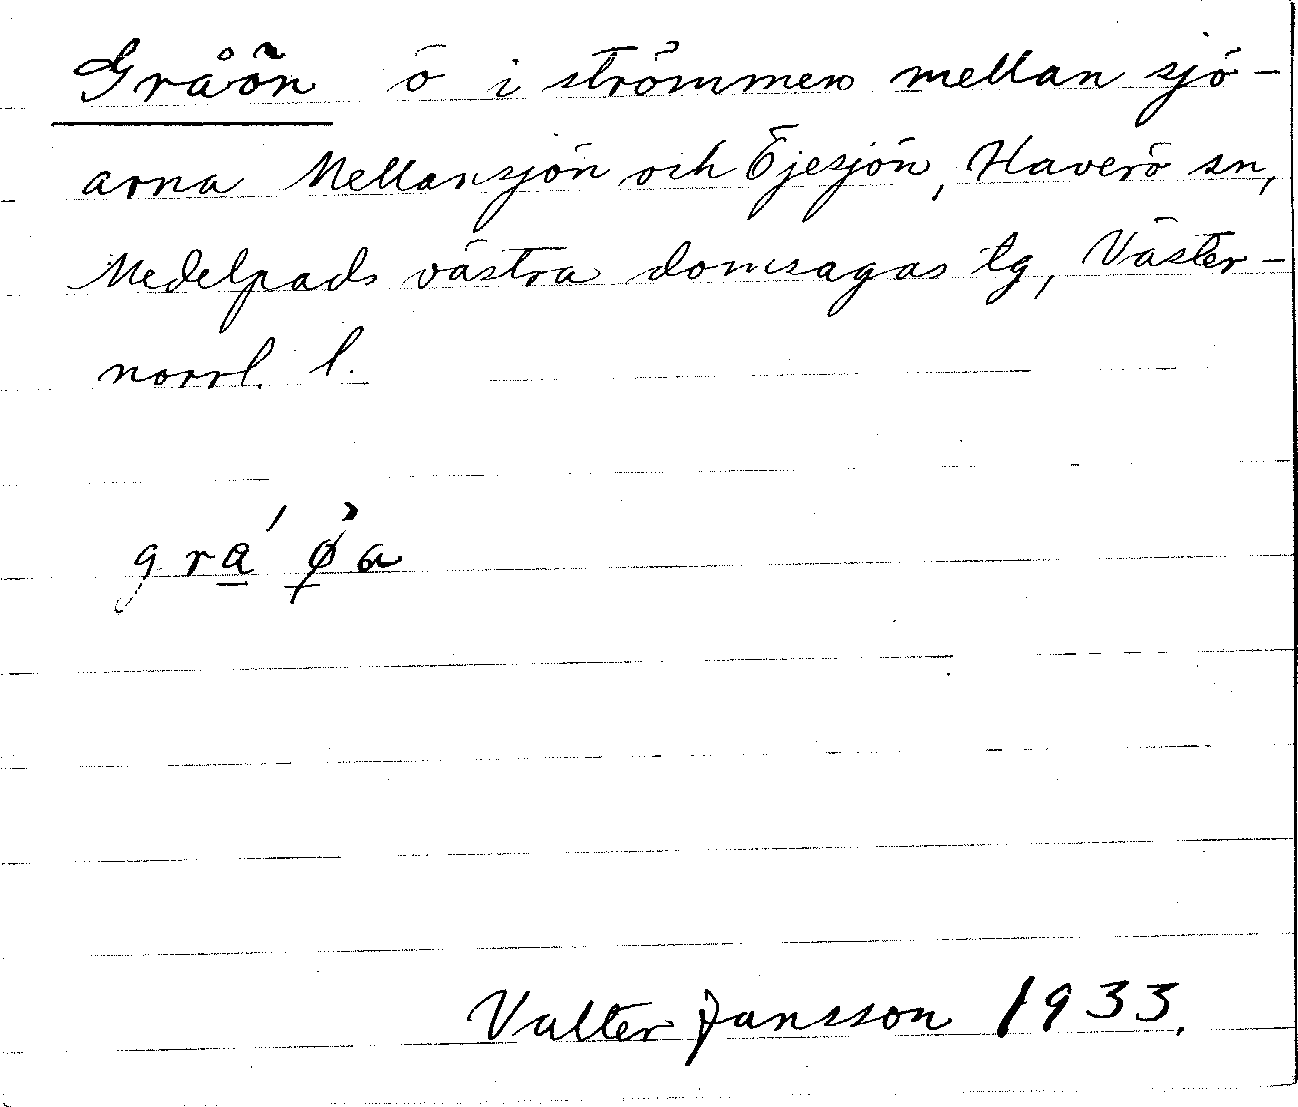 Gråön ö i strömmen mellan sjö-
arna Mellansjön och Öjesjön, Haverö sn,
Medelpads västra domsagas tg, Väster-
norrl. l.
gra̲´ ø̲̀a
Valter Jansson 1933.